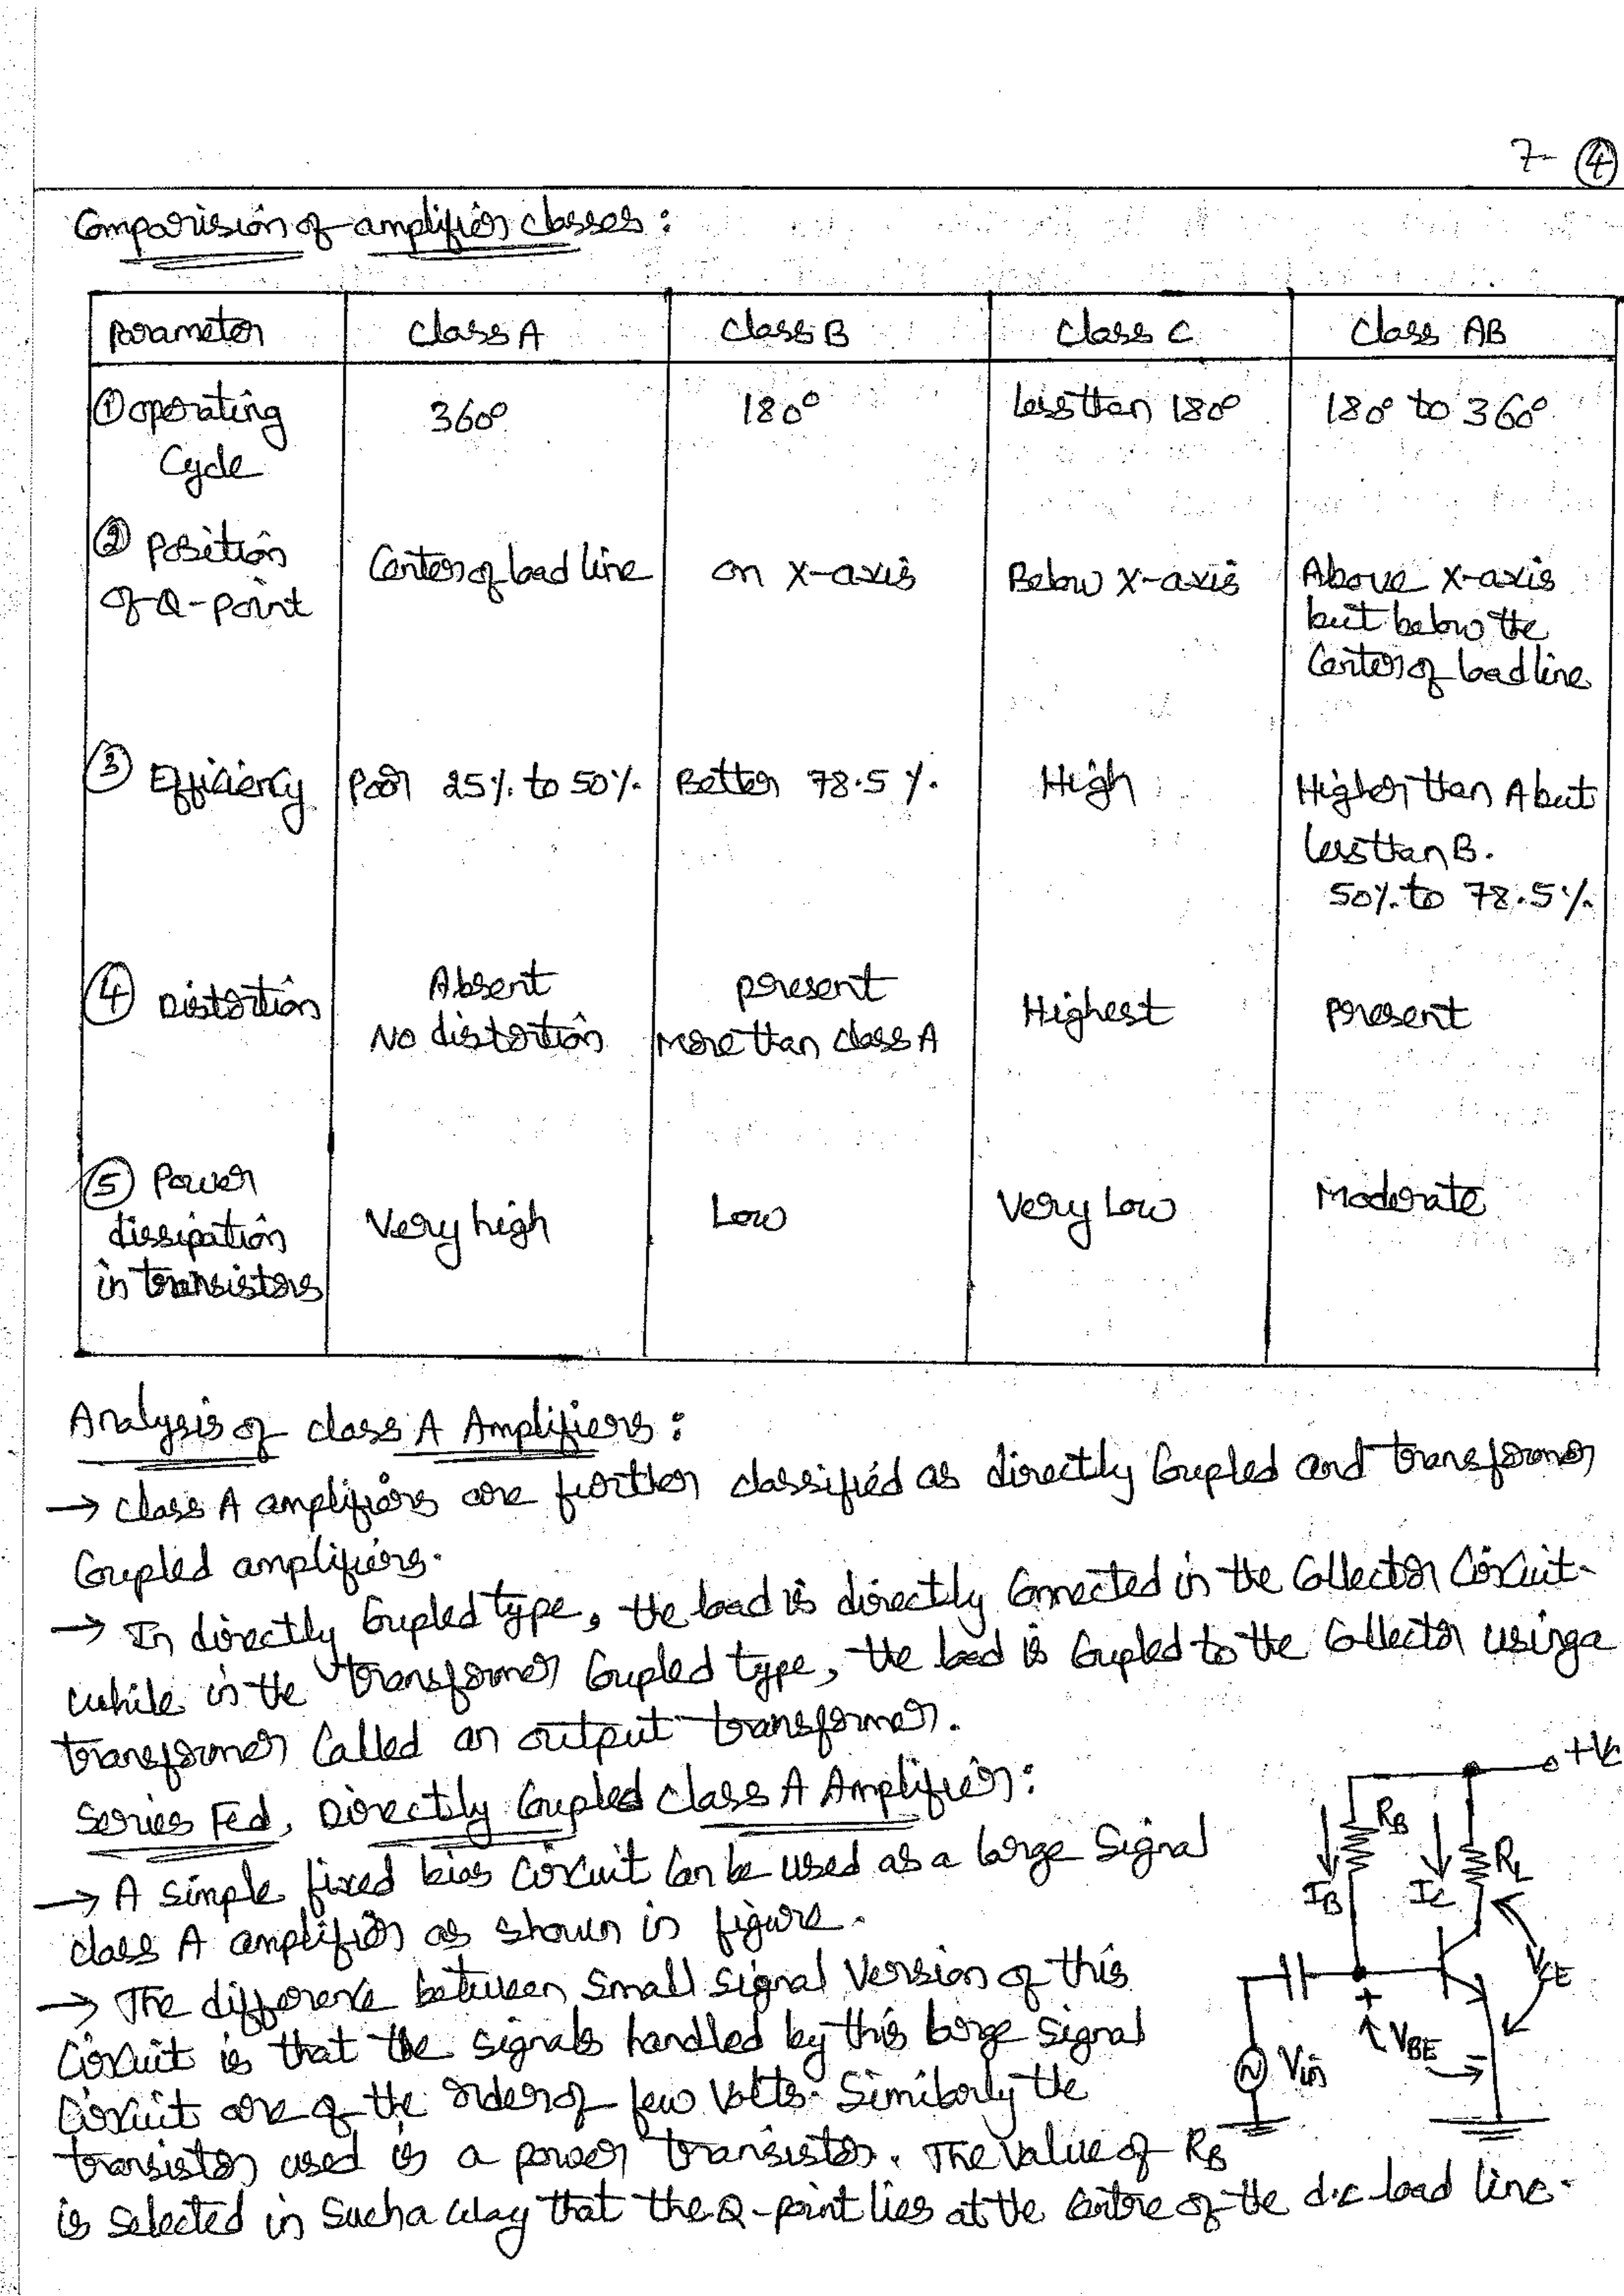 7- ④
Comparision of amplifier classes :
Parameter | Class A | Class B | Class C | Class AB
① operating Cycle | 360° | 180° | Less than 180° | 180° to 360°
② Position of Q-Point | Center of load line | on X-axis | Below X-axis | Above X-axis but below the Center of load line
③ Efficiency | Poor 25% to 50% | Better 78.5 % | High | Higher than A but less than B. 50% to 78.5%
④ Distortion | Absent No distortion | present More than class A | Highest | Present
⑤ Power dissipation in transistors | Very high | Low | Very Low | Moderate
Analysis of class A Amplifiers :
→ Class A amplifiers are further classified as directly Coupled and transformer
Coupled amplifiers.
→ In directly Coupled type, the load is directly Connected in the Collector Circuit.
while in the transformer Coupled type, the load is Coupled to the Collector using a
transformer Called an output transformer.
Series Fed, Directly Coupled Class A Amplifier :
→ A simple fixed bias Circuit Can be used as a large Signal
class A amplifier as shown in figure.
→ The difference between Small signal Version of this
Circuit is that the signals handled by this large signal
Circuit are of the order of few Volts. Similarly the
transistor used is a power transistor. The Value of RB
is selected in Such a way that the Q-point lies at the Centre of the d.c load line.
+VC
RB
RL
IB
IC
VCE
+
VBE
-
Vin